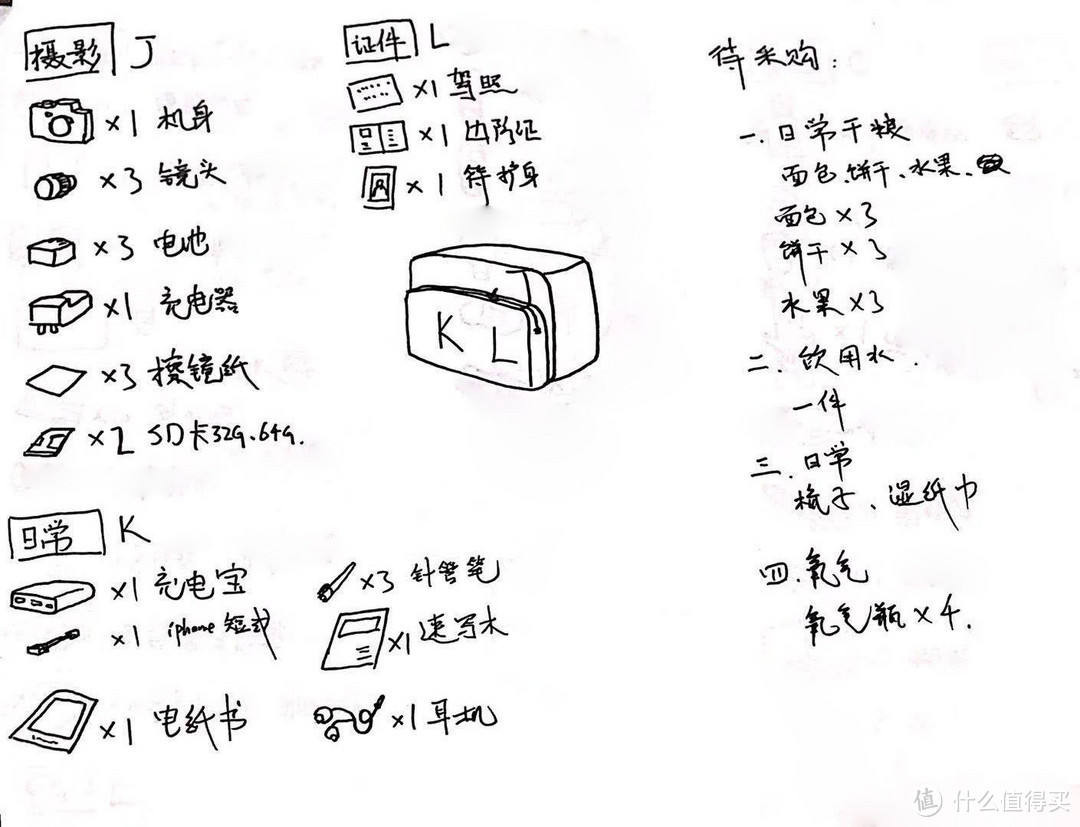 摄影 J
×1 机身
×3 镜头
×3 电池
×1 充电器
×3 擦镜纸
×2 SD卡32G、64G.
证件 L
×1 驾照
×1 边防证
×1 护身
K L
日常 K
×1 充电宝
×1 iphone 短式
×1 电纸书
×3 针管笔
×1 速写本
×1 耳机
待采购:
一.日常干粮
面包、饼干、水果、
面包×3
饼干×3
水果×3
二.饮用水.
一件
三.日常
梳子、湿纸巾
四.氧气
氧气瓶×4.
值 什么值得买